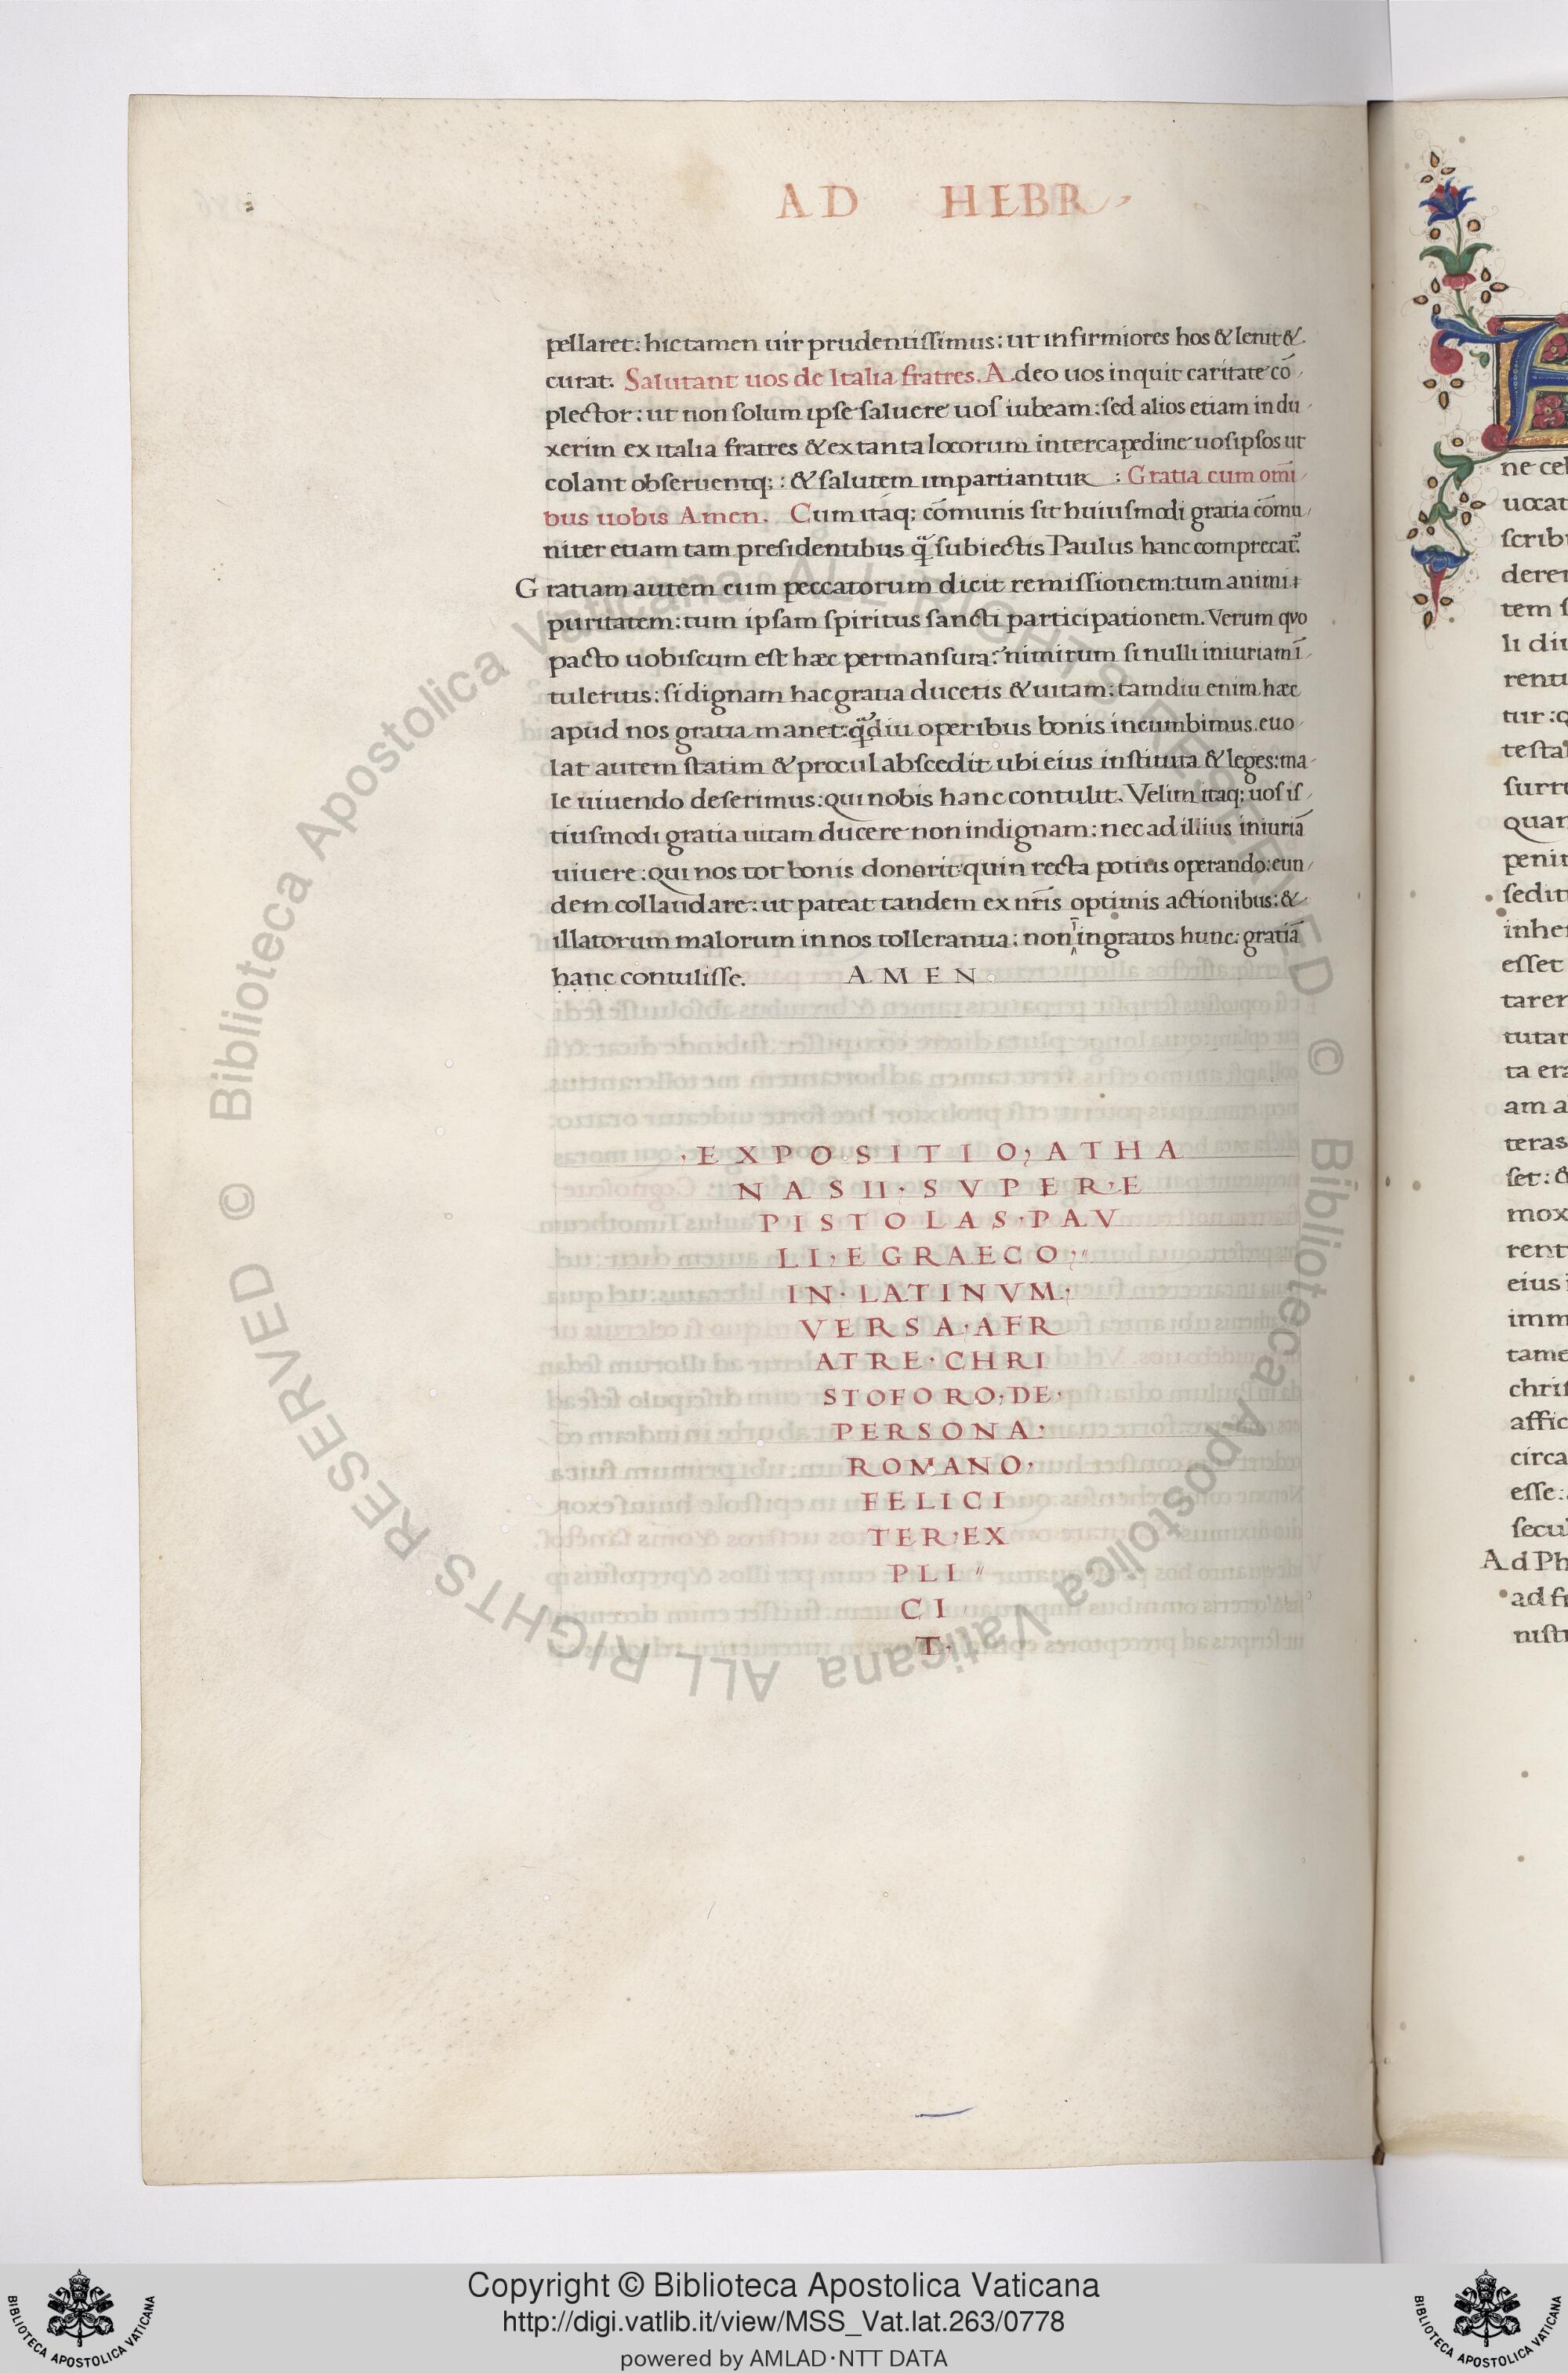 AD HEBR
pellaret: hic tamen uir prudentiſſimus: ut infirmiores hos & lenit &
curat. Salutant uos de Italia fratres. A deo uos inquit caritate cō
plector: ut non ſolum ipſe ſaluere uoſ iubeam: ſed alios etiam in du
xerim ex italia fratres & ex tanta locorum intercapedine uoſipſos ut
colant obſeruentq;: & ſalutem impartiantur: Gratia cum omī
bus uobis Amen. Cum itaq; cōmunis ſit huiuſmodi gratia cōmu
niter etiam tam preſidentibus q̃ ſubiectis Paulus hanc comprecat᷑.
Gratiam autem eum peccatorum dicit remiſſionem: tum animi
puritatem: tum ipſam ſpiritus ſancti participationem. Verum quo
pacto uobiſcum eſt hæc permanſura? nimirum ſi nulli iniuriam ī
tuleritis: ſi dignam hac gratia ducetis & uitam: tamdiu enim hæc
apud nos gratia manet: q̃diu operibus bonis incumbimus. euo
lat autem ſtatim & procul abſcedit ubi eius inſtituta & leges: ma
le uiuendo deſerimus: qui nobis hanc contulit. Velim itaq; uoſ iſ
tiuſmodi gratia uitam ducere non indignam: nec ad illius iniuriā
uiuere: qui nos tot bonis donarit quin recta potius operando: eun
dem collaudare: ut pateat tandem ex nr̄is optimis actionibus: &
illatorum malorum in nos tollerantia: non ī ingratos hunc: gratiā
hanc contuliſſe. AMEN
·EXPOSITIO, ATHA
NASII· SVPER·E
PISTOLAS·PAV
LI, E GRAECO,
IN· LATINVM·
VERSA·AFR
ATRE·CHRI
STOFORO·DE·
PERSONA·
ROMANO·
FELICI
TER·EX
PLI
CI
T·
ne cel
uocat
ſcrib
derer
tem ſ
li diu
rentu
tur: q
teſta
ſurr
quar
penit
ſedit
inher
eſſet
tarer
tutar
ta era
am a
teras
ſet: &
mox
rent
eius i
imm
tame
chriſ
affic
circa
eſſe:
ſecu
Ad Ph
ad fr
niſtr
© Biblioteca Apostolica Vaticana ALL RIGHTS RESERVED © Biblioteca Apostolica Vaticana ALL RIGHTS RESERVED
Copyright © Biblioteca Apostolica Vaticana
http://digi.vatlib.it/view/MSS_Vat.lat.263/0778
powered by AMLAD·NTT DATA
BIBLIOTECA APOSTOLICA VATICANA
BIBLIOTECA APOSTOLICA VATICANA